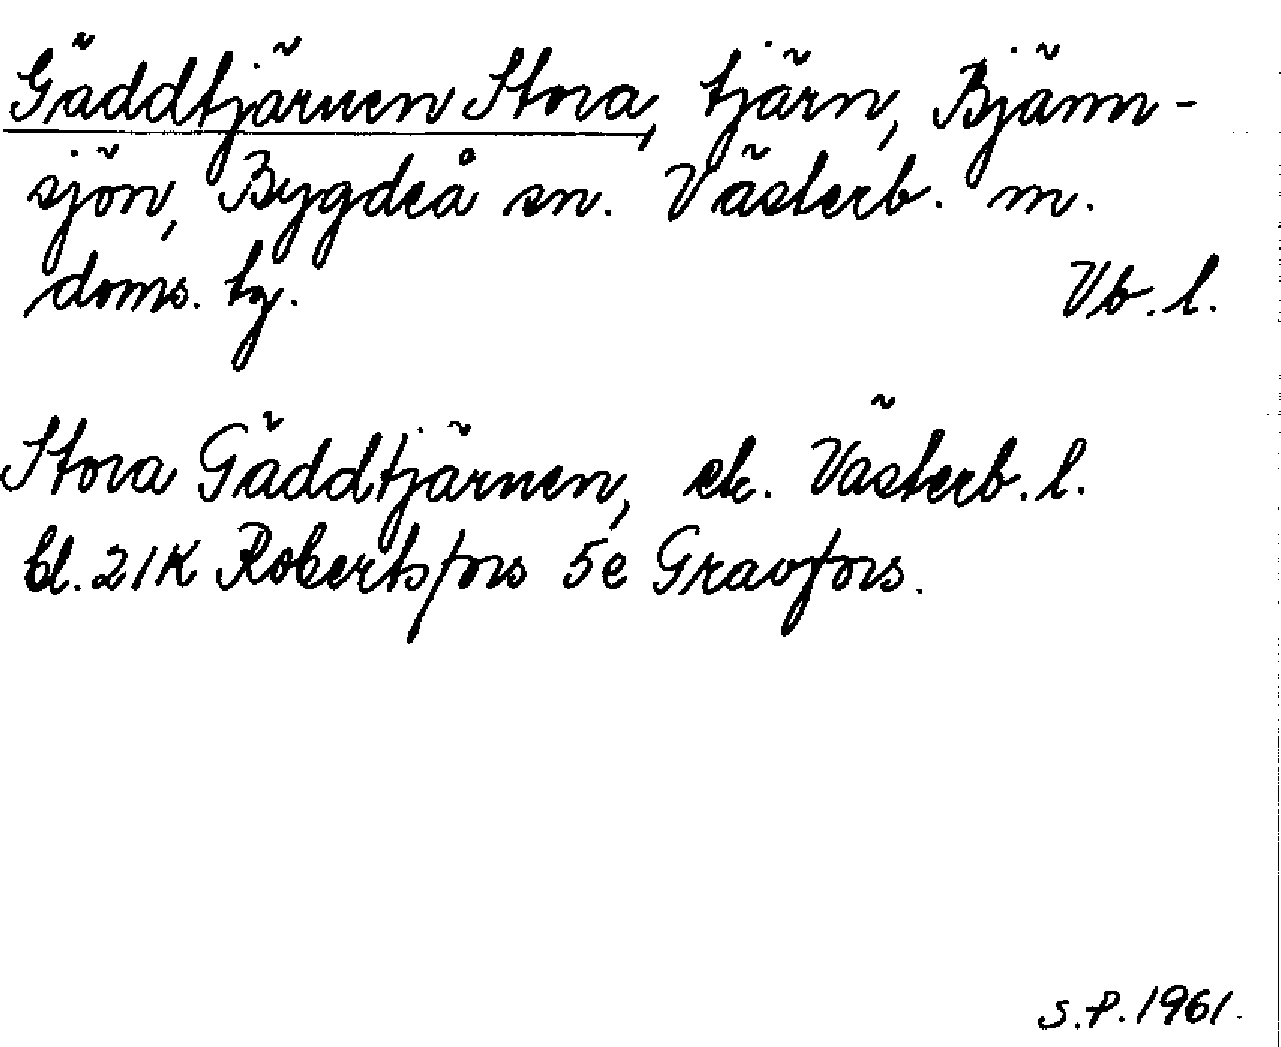 Gäddtjärnen Stora, tjärn, Bjänn-
sjön, Bygdeå sn. Västerb. m.
doms. tg. Vb. l.
Stora Gäddtjärnen, ek. Västerb. l.
bl. 21K Robertsfors 5e Gravfors.
S.P. 1961.